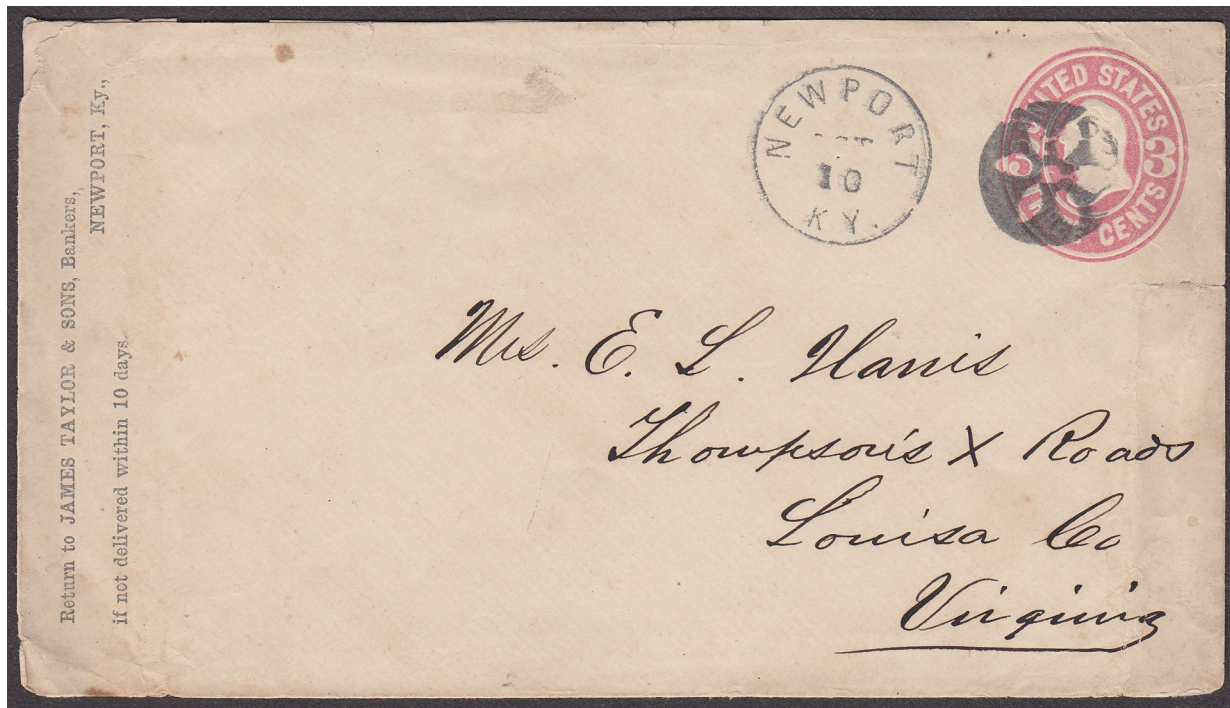 Return to JAMES TAYLOR & SONS, Bankers,
NEWPORT, Ky.,
if not delivered within 10 days.
NEWPORT
10
KY.
UNITED STATES
3 3
CENTS
Mrs. E. L. Harris
Thompson's X Roads
Louisa Co
Virginia